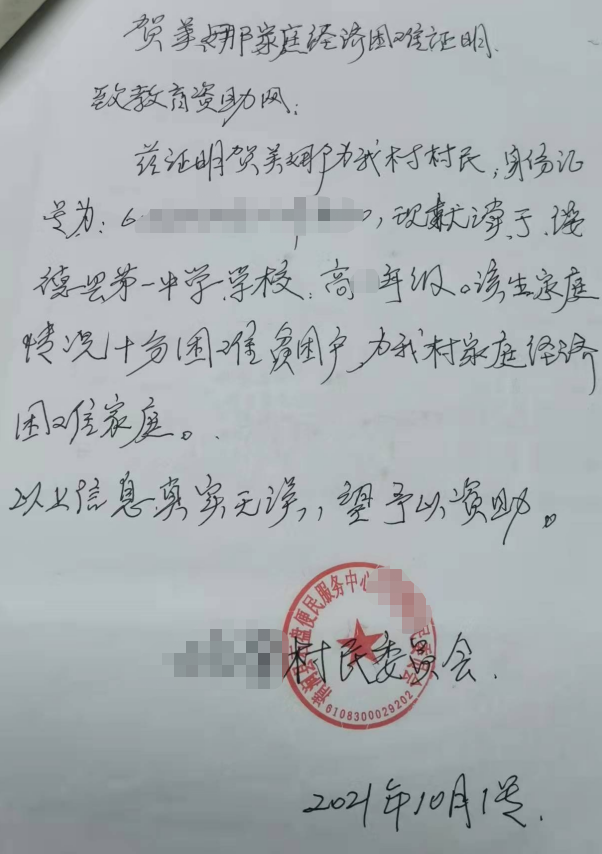 贺美娜家庭经济困难证明.
致教育资助网:
兹证明贺美娜为我村村民,身份证
号为:6 0,现就读于绥
德县第一中学学校,高 年级。该生家庭
情况十分困难贫困户,为我村家庭经济
困难家庭。
以上信息真实无误,望予以资助。
便民服务中心
村民委员会.
6108300029202
2021年10月1号.